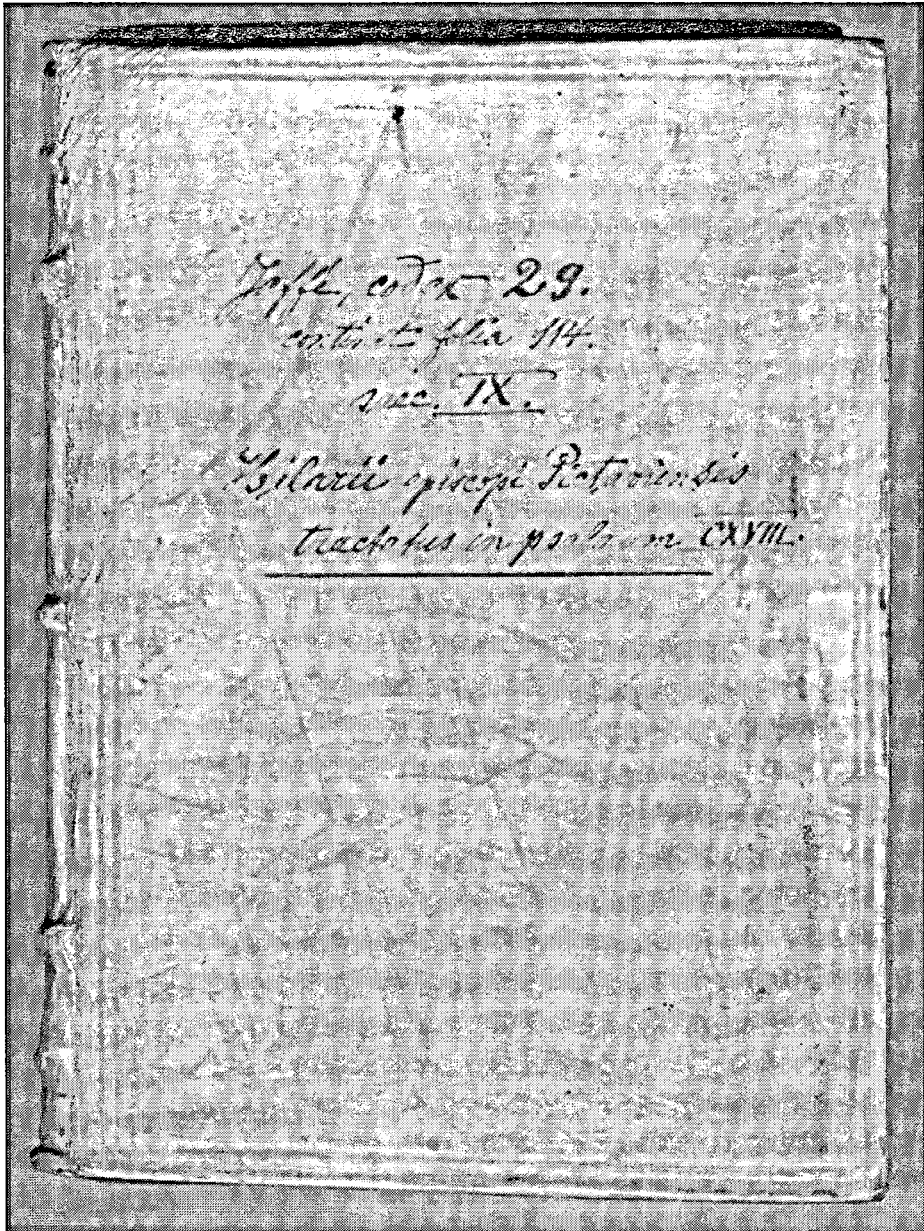 Jaffé, codex 29.
continet folia 114.
saec. IX.
Hilarii episcopi Pictaviensis
tractatus in psalmum CXVIII.